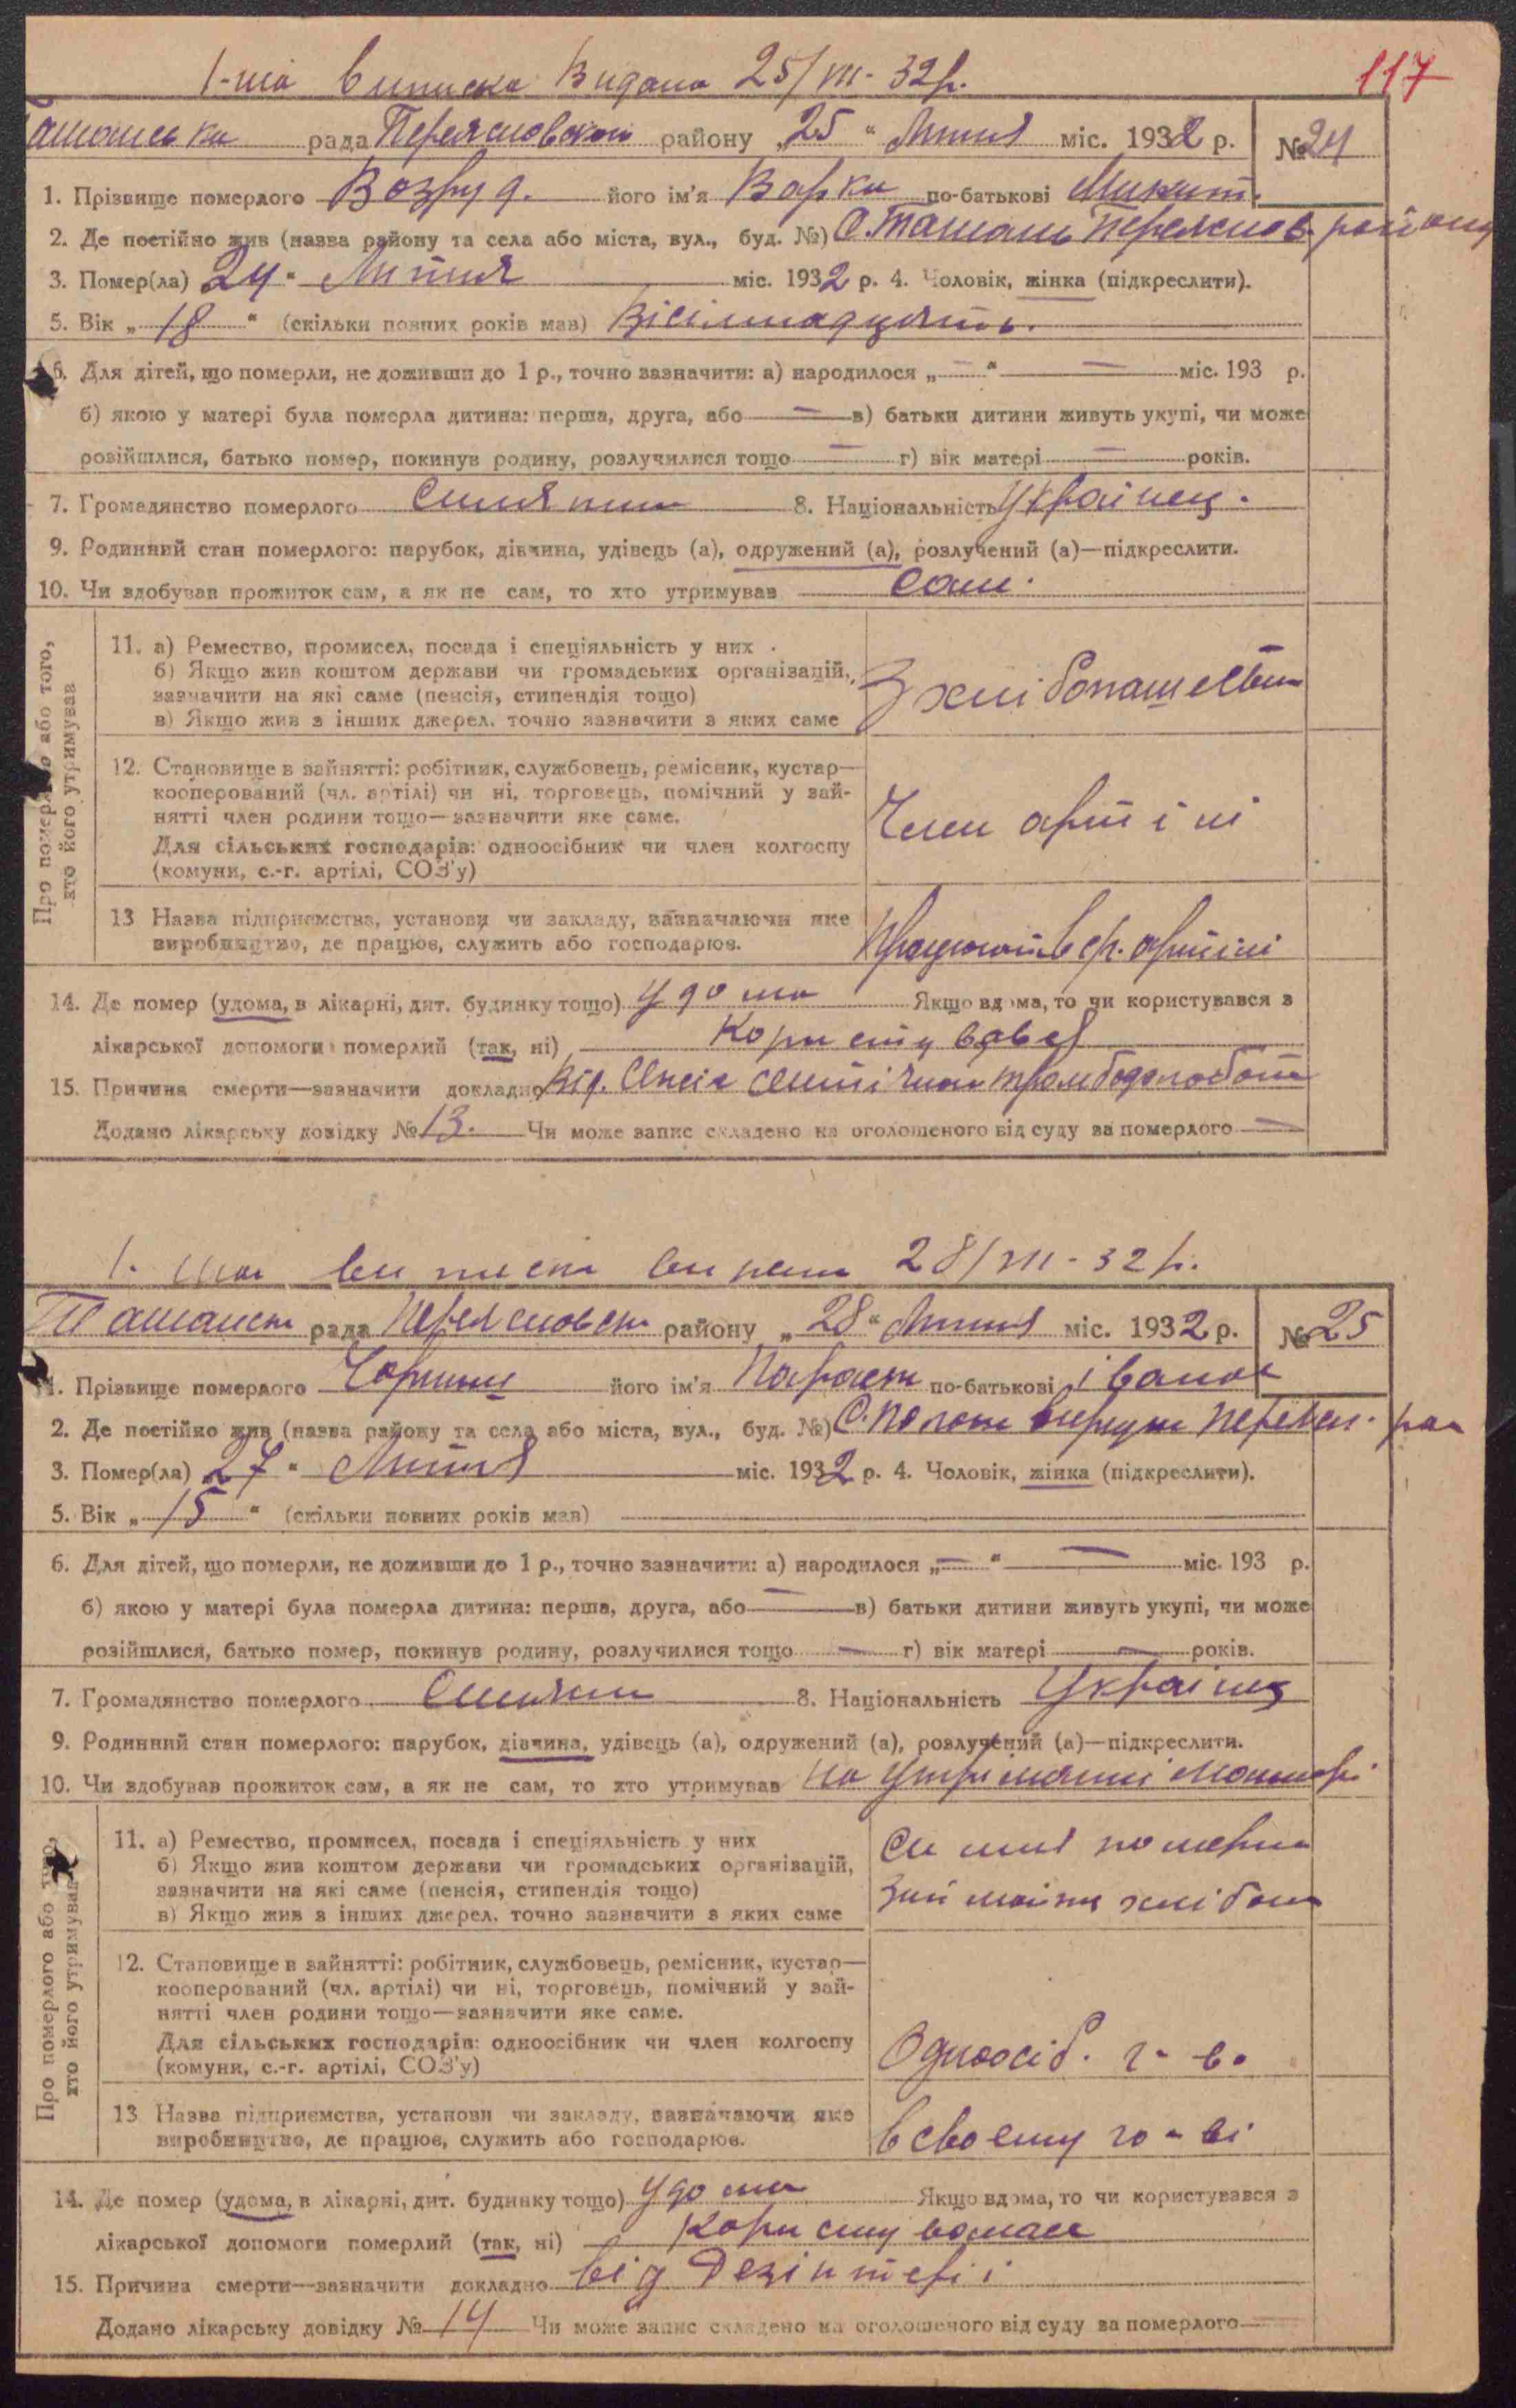 1-ша виписка Видана 25/VII-32р.
117
рада Переясловськ району „25“ Липня міс. 1932 р. № 24
1. Прізвище померлого Возбуд. його ім'я Варка по-батькові Микит.
2. Де постійно жив (назва району та села або міста, вул., буд. №) С. Ташань Переяслов. району
3. Помер(ла) 24 „ Липня міс. 1932 р. 4. Чоловік, жінка (підкреслити).
5. Вік „18“ (скільки повних років мав) Вісімнадцять.
6. Для дітей, що померли, не доживши до 1 р., точно зазначити: а) народилося „—“ — міс. 193 р.
б) якою у матері була померла дитина: перша, друга, або — в) батьки дитини живуть укупі, чи може
розійшлися, батько помер, покинув родину, розлучилися тощо — г) вік матері — років.
7. Громадянство померлого 8. Національність Українец.
9. Родинний стан померлого: парубок, дівчина, удівець (а), одружений (а), розлучений (а)—підкреслити.
10. Чи здобував прожиток сам, а як не сам, то хто утримував Сам.
Про померлого або того, хто його утримував
11. а) Ремество, промисел, посада і спеціяльність у них
б) Якщо жив коштом держави чи громадських організацій,
зазначити на які саме (пенсія, стипендія тощо)
в) Якщо жив з інших джерел, точно зазначити з яких саме
З хлібопашества
12. Становище в зайнятті: робітник, службовець, ремісник, кустар—
кооперований (чл. артілі) чи ні, торговець, помічний у зай-
нятті член родини тощо—зазначити яке саме.
Для сільських господарів: одноосібник чи член колгоспу
(комуни, с.-г. артілі, СОЗ'у)
Член артілі
13 Назва підприємства, установи чи закладу, зазначаючи яке
виробництво, де працює, служить або господарює.
артілі
14. Де помер (удома, в лікарні, дит. будинку тощо) Удома Якщо вдома, то чи користувався з
лікарської допомоги померлий (так, ні) Користувався
15. Причина смерти—зазначити докладно Від.
Додано лікарську довідку № 13. Чи може запис складено на оголошеного від суду за померлого —
1. ша виписка 28/VII-32р.
Ташанськ рада Переясловськ району „28“ Липня міс. 1932 р. № 25
1. Прізвище померлого його ім'я Параск по-батькові Іванов
2. Де постійно жив (назва району та села або міста, вул., буд. №) С.
3. Помер(ла) 27 „ Липня міс. 1932 р. 4. Чоловік, жінка (підкреслити).
5. Вік „15“ (скільки повних років мав)
6. Для дітей, що померли, не доживши до 1 р., точно зазначити: а) народилося „—“ — міс. 193 р.
б) якою у матері була померла дитина: перша, друга, або — в) батьки дитини живуть укупі, чи може
розійшлися, батько помер, покинув родину, розлучилися тощо — г) вік матері — років.
7. Громадянство померлого 8. Національність Українец
9. Родинний стан померлого: парубок, дівчина, удівець (а), одружений (а), розлучений (а)—підкреслити.
10. Чи здобував прожиток сам, а як не сам, то хто утримував на утриманні матері
Про померлого або того, хто його утримував
11. а) Ремество, промисел, посада і спеціяльність у них
б) Якщо жив коштом держави чи громадських організацій,
зазначити на які саме (пенсія, стипендія тощо)
в) Якщо жив з інших джерел, точно зазначити з яких саме
12. Становище в зайнятті: робітник, службовець, ремісник, кустар—
кооперований (чл. артілі) чи ні, торговець, помічний у зай-
нятті член родини тощо—зазначити яке саме.
Для сільських господарів: одноосібник чи член колгоспу
(комуни, с.-г. артілі, СОЗ'у)
Одноосіб. г-во
13 Назва підприємства, установи чи закладу, зазначаючи яке
виробництво, де працює, служить або господарює.
в своєму го-ві
14. Де помер (удома, в лікарні, дит. будинку тощо) Удома Якщо вдома, то чи користувався з
лікарської допомоги померлий (так, ні) Користувалась
15. Причина смерти—зазначити докладно від Дезінтерії
Додано лікарську довідку № 14 Чи може запис складено на оголошеного від суду за померлого —